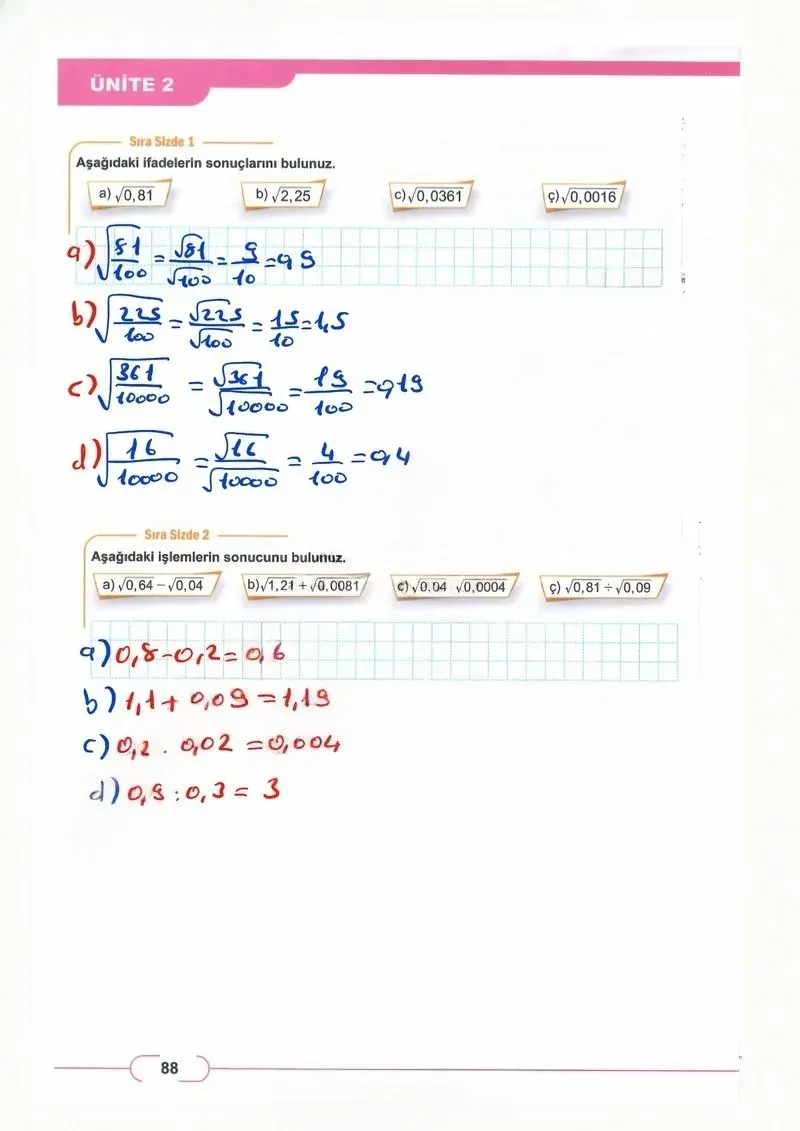 ÜNİTE 2
Sıra Sizde 1
Aşağıdaki ifadelerin sonuçlarını bulunuz.
a) √0,81 b) √2,25 c) √0,0361 ç) √0,0016
a) √81/100 = √81/√100 = 9/10 = 0,9
b) √225/100 = √225/√100 = 15/10 = 1,5
c) √361/10000 = √361/√10000 = 19/100 = 0,19
d) √16/10000 = √16/√10000 = 4/100 = 0,4
Sıra Sizde 2
Aşağıdaki işlemlerin sonucunu bulunuz.
a) √0,64 – √0,04 b) √1,21 + √0,0081 c) √0.04 √0,0004 ç) √0,81 ÷ √0,09
a) 0,8-0,2= 0,6
b) 1,1+ 0,09 = 1,19
c) 0,2 . 0,02 = 0,004
d) 0,9 : 0,3 = 3
88